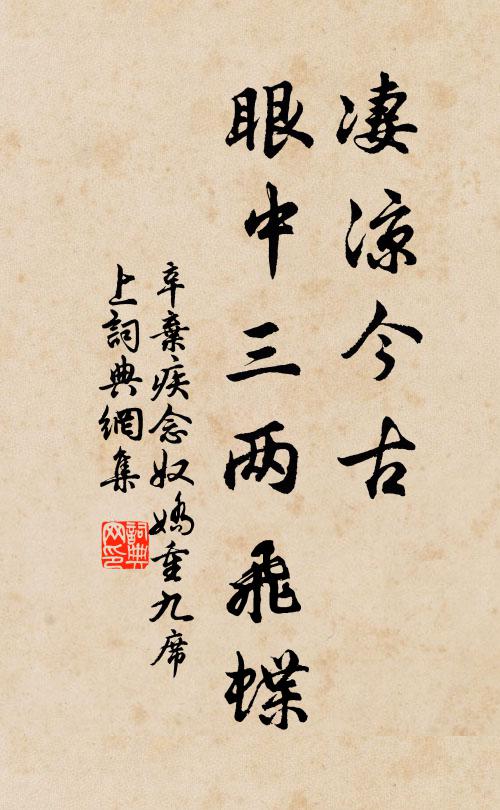 凄涼今古
眼中三两飛蝶
辛棄疾念奴嬌重九席
上詞典網集
詞典
网印